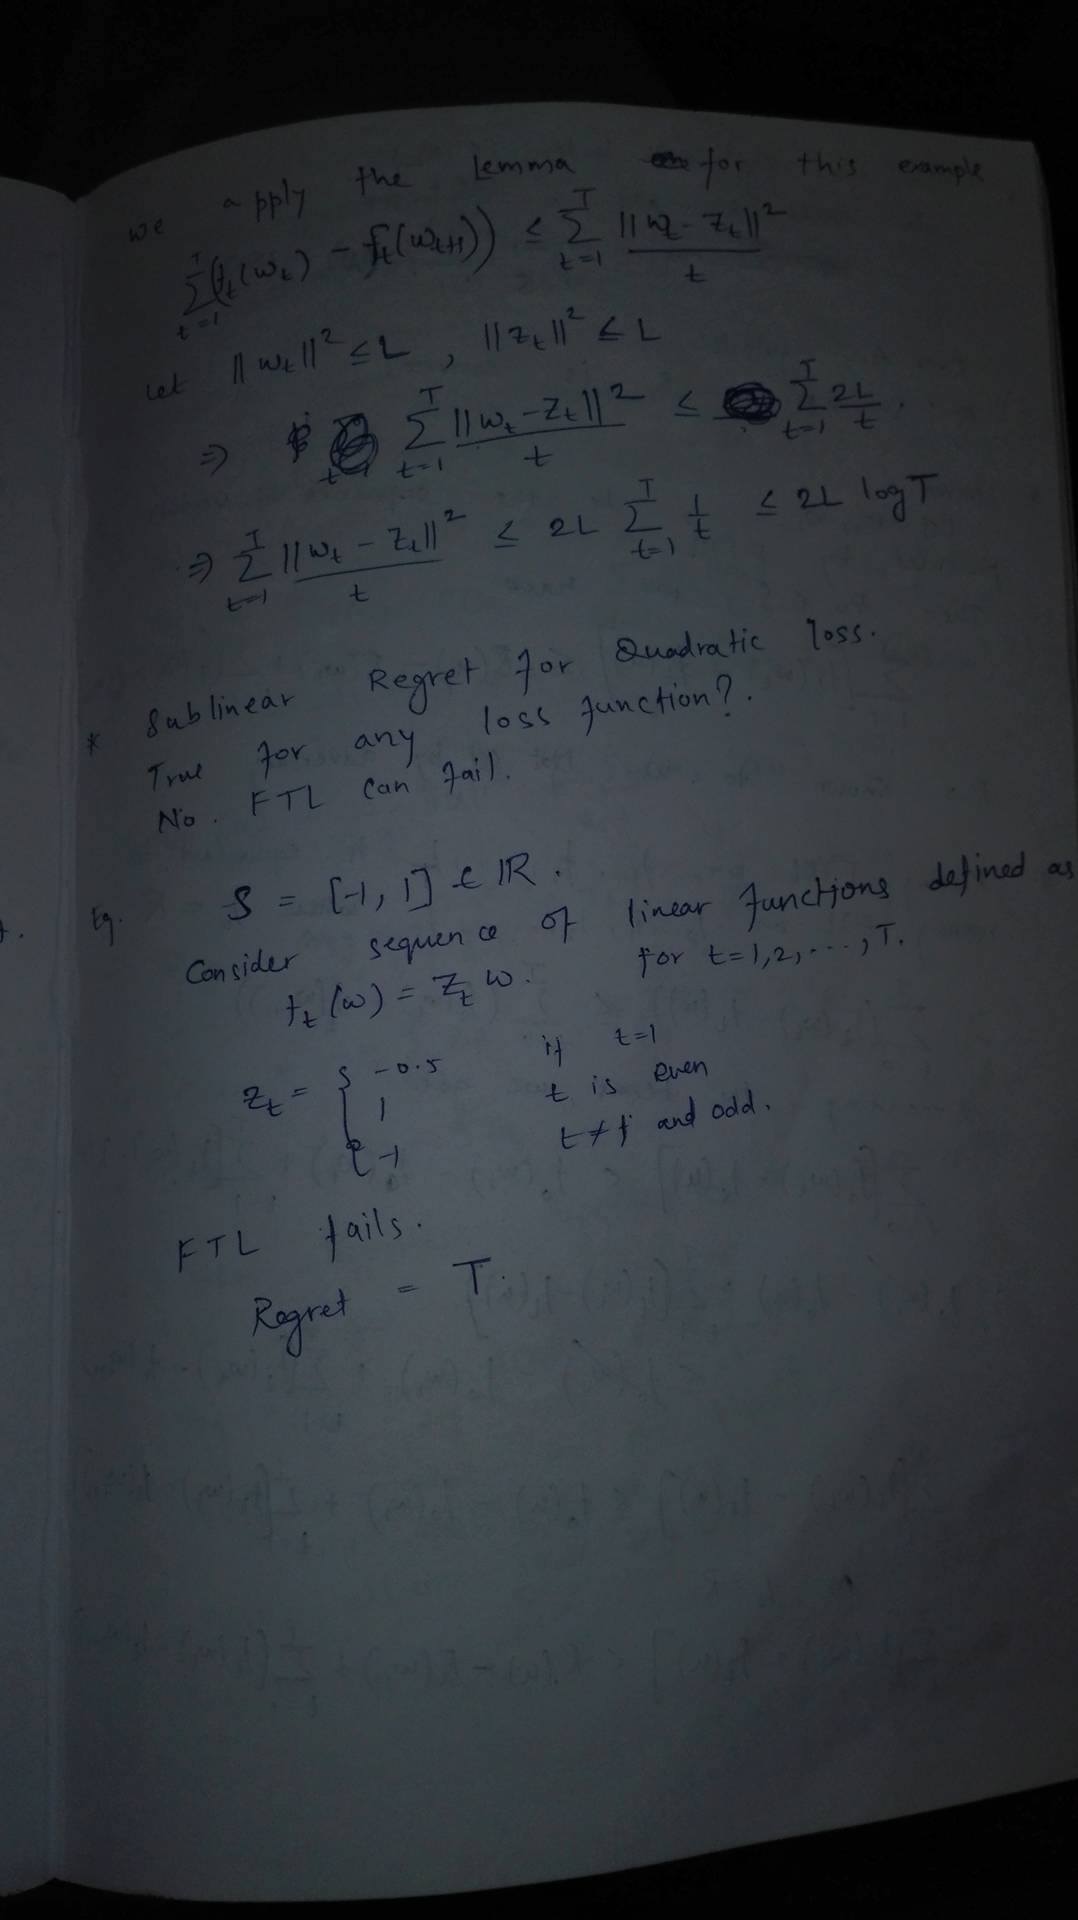 we apply the Lemma for this example
\sum_{t=1}^{T} (f_t(w_t) - f_t(w_{t+1})) ≤ \sum_{t=1}^{T} \frac{||w_t - z_t||^2}{t}
Let ||w_t||^2 ≤ L , ||z_t||^2 ≤ L
⇒ \sum_{t=1}^{T} \frac{||w_t - z_t||^2}{t} ≤ \sum_{t=1}^{T} \frac{2L}{t}.
⇒ \sum_{t=1}^{T} \frac{||w_t - z_t||^2}{t} ≤ 2L \sum_{t=1}^{T} \frac{1}{t} ≤ 2L log T
* Sublinear Regret for Quadratic loss.
True for any loss function?.
No. FTL can fail.
Eg. S = [-1, 1] ∈ IR.
Consider sequence of linear functions defined as
f_t(w) = z_t w. for t=1,2,...,T.
z_t = { -0.5 if t=1
1 t is even
-1 t≠1 and odd.
FTL fails.
Regret = T.